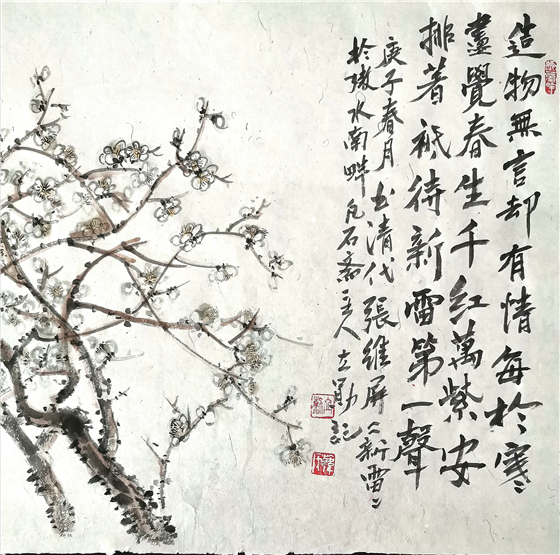 造物無言却有情每於寒
盡覺春生千紅萬紫安
排著祇待新雷第一聲
庚子春月书清代張維屏《新雷》
於水南畔凡石斋主人记